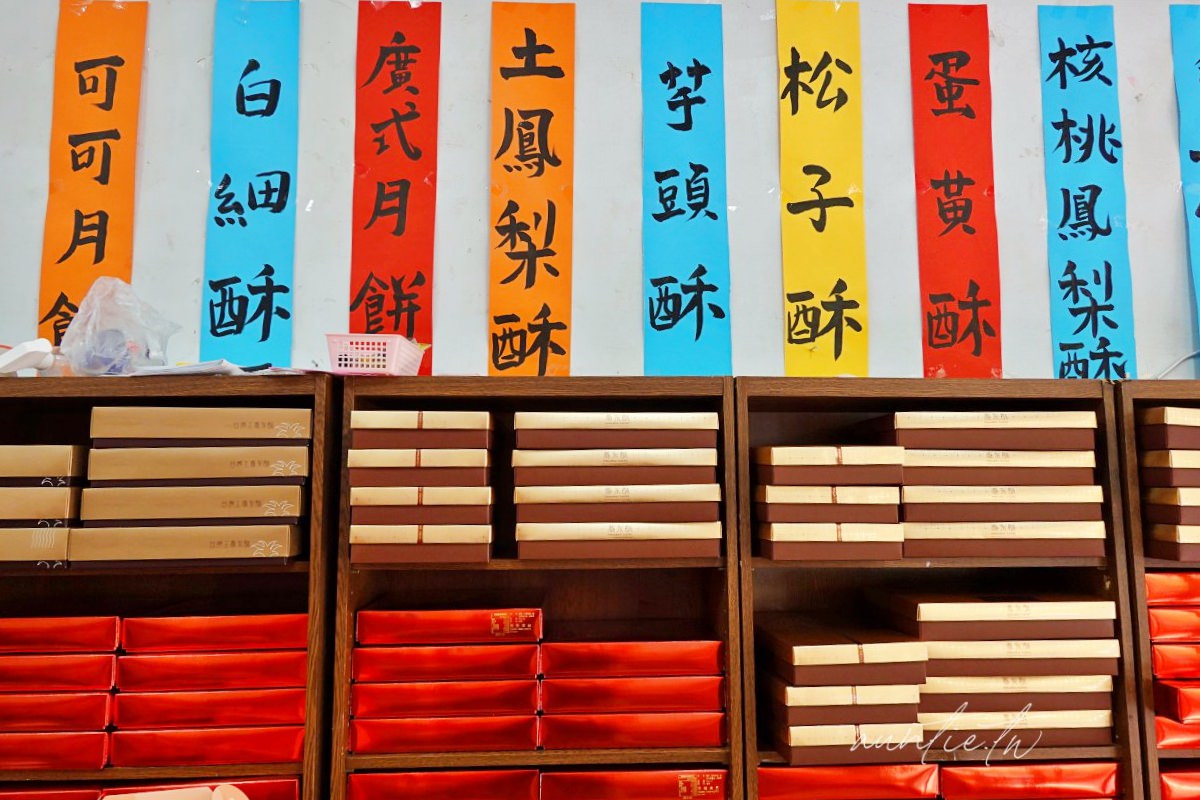 可可月餅
白細酥
廣式月餅
土鳳梨酥
芋頭酥
松子酥
蛋黃酥
核桃鳳梨酥
nunlie.tw